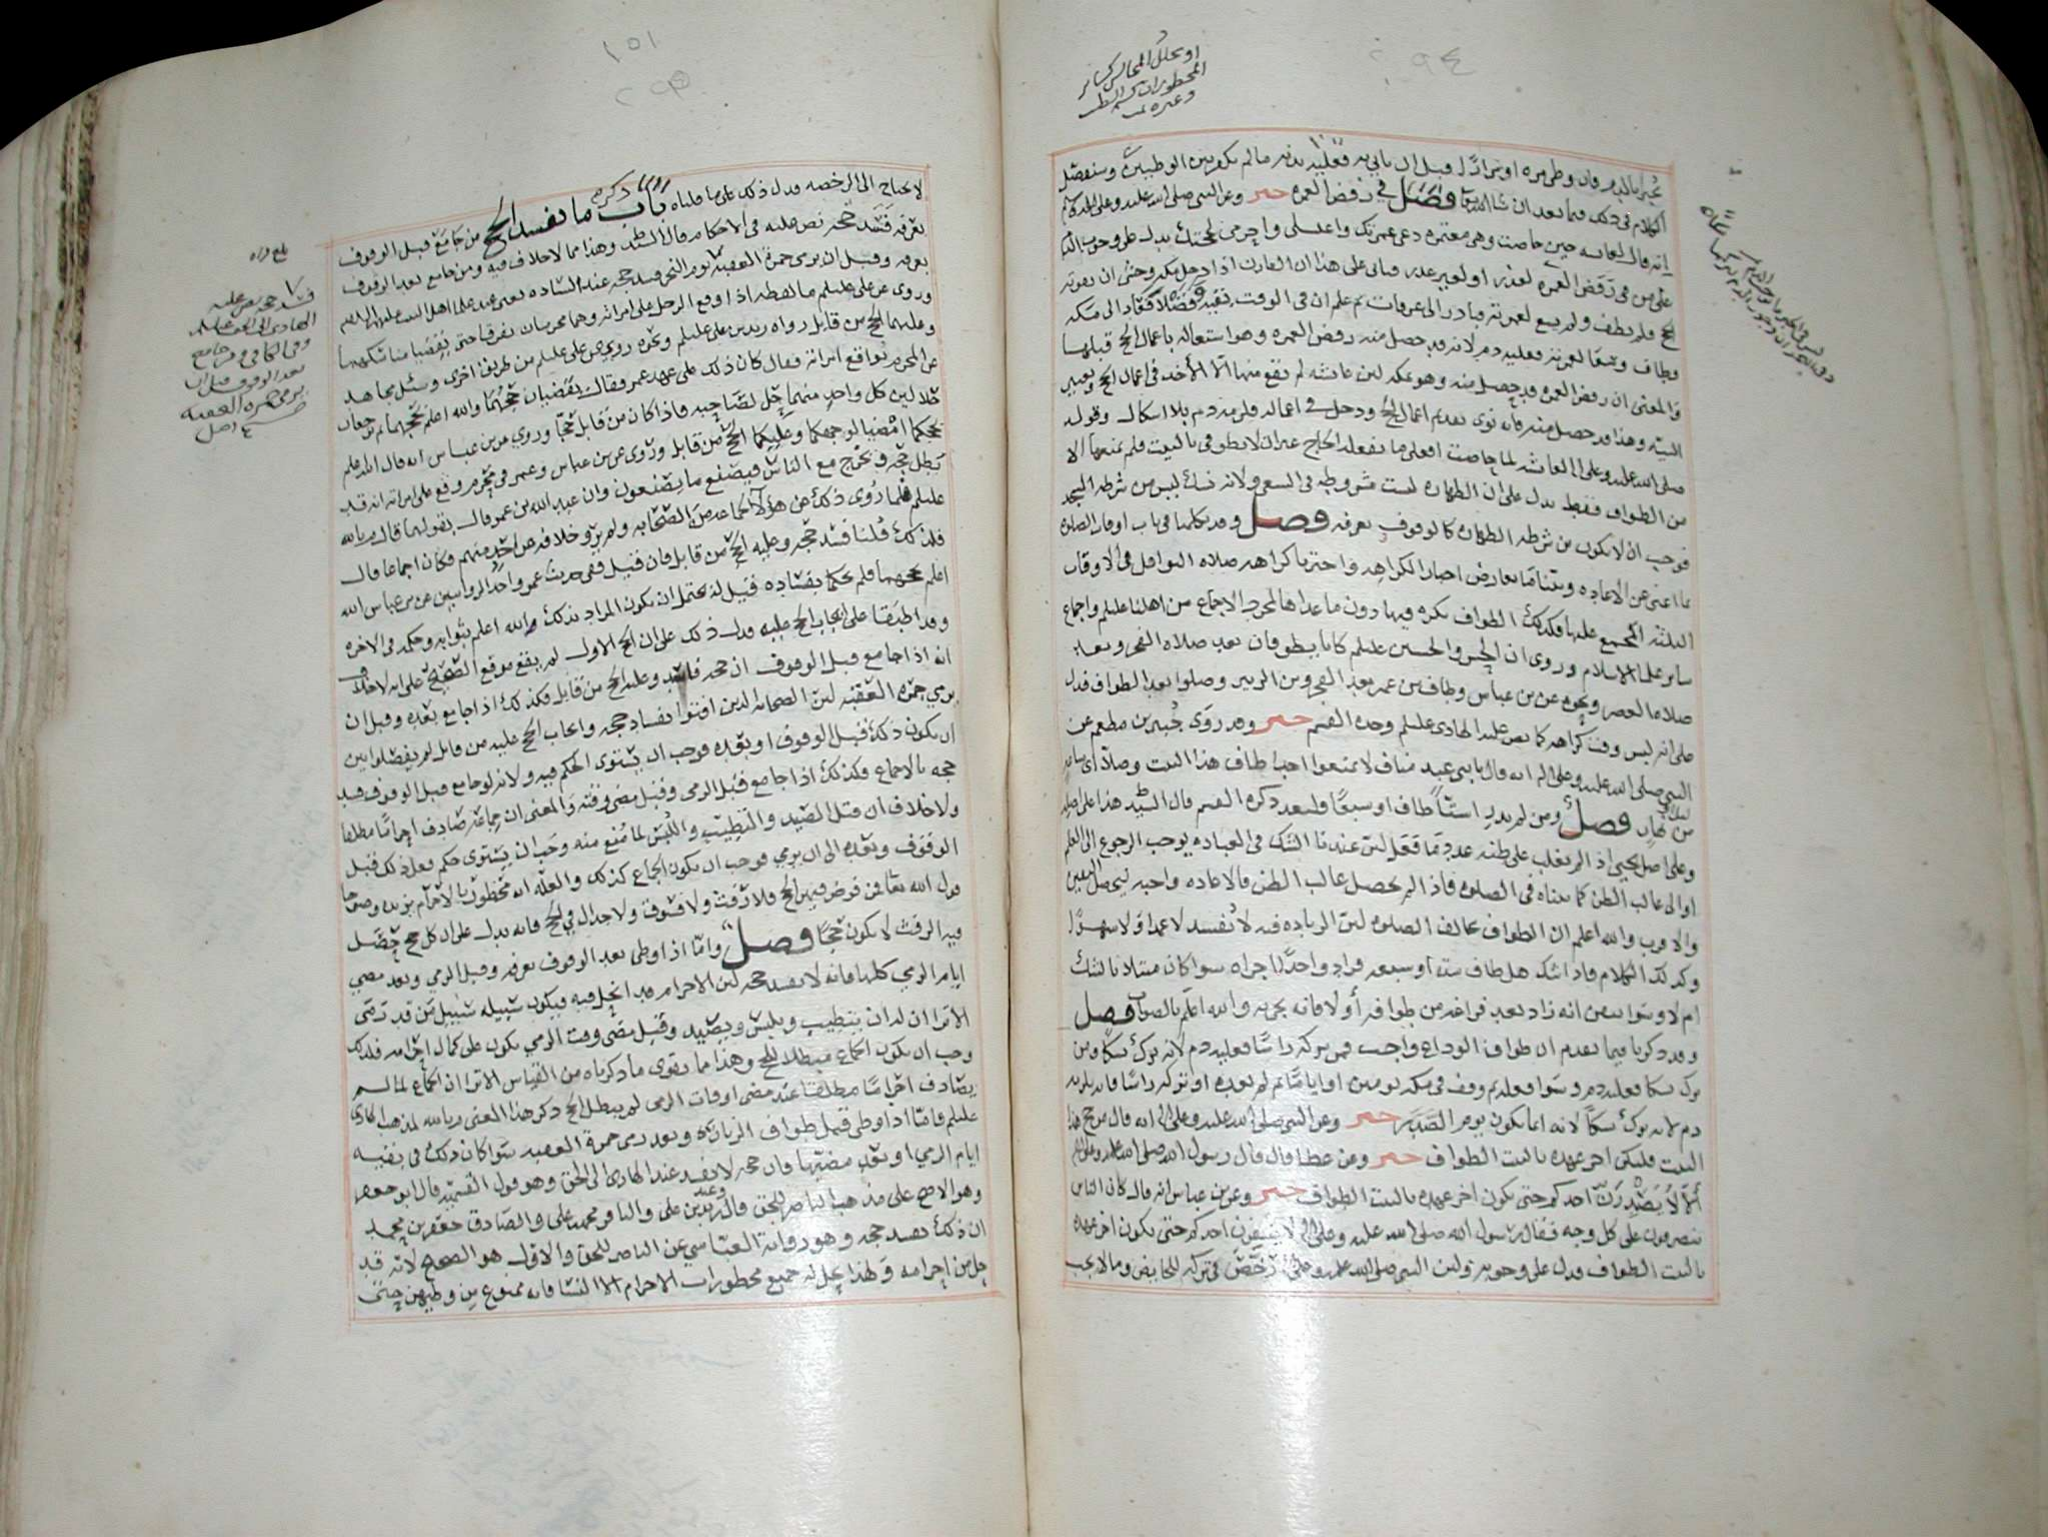 ٢٩٤
او تحلل المجالس كسائر
المحظورات
وغيره
يجبر بالدم فان وطى مرة او مرارا قبل ان ياتي به فعليه بدنه ما لم يكفر بين الوطيين وسنفصل
الكلام في ذلك فيما بعد ان شا الله تعا فصل في رفض العمره خبر وعن النبي صلى الله عليه وعلى اله
انه قال لعائشه حين حاضت وهي معتمره دعي عمرتك واغتسلي واحرمي لحجتك يدل على وجوب
على من رفض العمره لعذر او لغير عذر فياتي على هذا ان القارن اذا دخل مكه وخشي ان يفوته
الحج فلم يطف ولم يسع لعمرته فبادر الى عرفات ثم علم ان في الوقت بقيه فعاد الى مكه
وطاف وسعى لعمرته فعليه دم لانه قد حصل منه رفض العمره وهو اشتغاله باعمال الحج قبلها
والمعنى ان رفض العمره قد حصل منه وهو بمكه لان عائشه لم يقع منها الا الأخذ في اعمال الحج
النيه وهذا قد حصل منه فانه نوى تقديم اعمال الحج ودخل في اعماله فلزمه دم بلا اشكال وقوله
صلى الله عليه وعلى اله لعائشه لما حاضت افعلي ما يفعله الحاج غير ان لا تطوفي بالبيت فلم يمنعها الا
من الطواف فقط يدل على ان الطهاره ليست مشروطه في السعي ولانه نسك ليس من شرطه المسجد
فوجب ان لا يكون من شرطه الطهاره كالوقوف بعرفه فصل وقد تكلمنا في باب اوقات الصلوه
بما اغنى عن الاعاده وبينا ما يعارض اخبار الكراهه واخترنا كراهه صلاه النوافل في الاوقات
الثلثه المجمع عليها فكذلك الطواف يكره فيها دون ما عداها لمجرد الاجماع من اهلنا عليلم واجماع
ساير علما الاسلام وروي ان الحسن والحسين عليلم كانا يطوفان بعد صلاه الفجر وبعد
صلاه العصر ونحوه عن بن عباس وطاف بن عمر بعد الفجر وبن الزبير وصلوا بعد الطواف فدل
على انه ليس وقت كراهه كما نص عليه الهادي عليلم وحده القسم خبر وقد روى جبير بن مطعم عن
النبي صلى الله عليه وعلى اله انه قال يا بني عبد مناف لا تمنعوا احدا طاف هذا البيت وصلا اي ساعه
من ليل او نهار فصل ومن لم يدر استّا طاف او سبعا فليعد ذكره القسم قال السيد هذا على اصله
وعلى اصل يحيى اذا لم يغلب على ظنه عدد ما فعل لان عندنا الشك في العباده يوجب الرجوع الى العلم
او الى غالب الظن كما بيناه في الصلوه فاذا لم يحصل غالب الظن فالاعاده واجبه ليحصل اليقين
والاقرب والله اعلم ان الطواف يخالف الصلوه لان الزياده فيه لا تفسد لا عمدا ولا سهوا
وكذلك الكلام فاذا شك هل طاف سته او سبعه فزاد واحدا اجزاه سوا كان مبتلا بالشك
ام لا وسوا تبين انه زاد بعد فراغه من طوافه أو لا فانه يجزيه والله اعلم بالصواب فصل
وقد ذكرنا فيما تقدم ان طواف الوداع واجب فمن تركه راسا فعليه دم لانه ترك نسكا ومن
ترك نسكا فعليه دم وسوا فعله ثم وقف في مكه يومين او اياما ثم لم يعده او تركه راسا فانه يلزمه
دم لانه ترك نسكا لانه انما يكون يوم الصدر خبر وعن النبي صلى الله عليه وعلى اله انه قال من حج هذا
البيت فليكن اخر عهده بالبيت الطواف خبر وعن عطا قال قال رسول الله صلى الله عليه وعلى اله
ألا لا يصدرن احدكم حتى يكون اخر عهده بالبيت الطواف خبر وعن بن عباس انه قال كان الناس
ينصرفون على كل وجه فقال رسول الله صلى الله عليه وعلى اله لا ينفرن احدكم حتى يكون اخر عهده
بالبيت الطواف فدل على وجوبه ولان النبي صلى الله عليه وعلى اله رخص في تركه للحايض وما لا يجب
١٥١
٢٩٥
لا يحتاج الى الرخصه فدل ذلك على ما قلناه باب ذكر ما يفسد الحج من جامع قبل الوقوف
بعرفه فسد حجه نص عليه في الاحكام قال السيد وهذا مما لا خلاف فيه ومن جامع بعد الوقوف
بعرفه وقبل ان يرمي جمرة العقبه يوم النحر فسد حجه عند الساده
وروي عن علي عليلم ما لفظه اذا وقع الرجل على امراته وهما محرمان تفرقا حتى يقضيا مناسكهما
وعليهما الحج من قابل رواه زيد بن علي عليلم ونحوه روي عن علي عليلم من طريق اخرى وسئل مجاهد
عن المحرم يواقع امراته فقال كان ذلك على عهد عمر فقال يقضيان حجهما والله اعلم بحجهما ثم يرجعان
حلالين كل واحد منهما حل لصاحبه فاذا كان من قابل حجا وروي عن بن عباس انه قال الله اعلم
بحجكما امضيا لوجهكما وعليكما الحج من قابل وروي عن بن عباس وعمر في محرم وقع على امراته انه قد
بطل حجه ويخرج مع الناس فيصنع ما يصنعون وان عبد الله بن عمر قال بقولهما قال م بالله
عليلم فلما روي ذلك عن هؤلا الجماعه من الصحابه ولم يرو خلافه عن احد منهم فكان اجماعا قال
فلذلك قلنا فسد حجه وعليه الحج من قابل فان قيل ففي حديث عمر واحد الروايتين عن بن عباس الله
اعلم بحجهما فلم يحكما بفساده قيل له يحتمل ان يكون المراد بذلك والله اعلم بثوابه وحكمه في الاخره
وقد اطبقا على ايجاب الحج عليه فدل ذلك على ان الحج الاول لم يقع موقع الصحيح على انه لا خلاف
انه اذا جامع قبل الوقوف ان حجه فاسد وعليه الحج من قابل فكذلك اذا جامع بعده وقبل ان
يرمي جمره العقبه لان الصحابه الذين افتوا بفساد حجه وايجاب الحج عليه من قابل لم يفصلوا بين
ان يكون ذلك قبل الوقوف او بعده فوجب ان يستوى الحكم فيه ولانه لو جامع قبل الوقوف فسد
حجه بالاجماع فكذلك اذا جامع قبل الرمي وقبل مضي وقته والمعنى ان جماعه صادف احراما مطلقا
ولا خلاف ان قتل الصيد والتطيب واللبس لما منع منه وجب ان يستوى حكم فعل ذلك قبل
الوقوف وبعده الى ان يرمي فوجب ان يكون الجماع كذلك والعله انه محظور بالاحرام
قول الله تعا فمن فرض فيهن الحج فلا رفث ولا فسوق ولا جدال في الحج فانه يدل على ان كل حج حصل
فيه الرفث لا يكون حجا فصل وامّا اذا وطى بعد الوقوف بعرفه وقبل الرمي وبعد مضي
ايام الرمي كلها فانه لا يفسد حجه لان الاحرام قد انحل فيه فيكون سبيله سبيل من قد رمى
الاترا ان له ان يتطيب ويلبس ويصيد وقبل مضي وقت الرمي يكون على كمال احرامه فلذلك
وجب ان يكون الجماع مبطلا للحج وهذا ما يقوي ما ذكرناه من القياس الاترا ان الجماع لما لم
يصادف احراما مطلقا عند مضي اوقات الرمي لم يبطل الحج ذكر هذا المعنى م بالله لمذهب الهادي
عليلم فامّا اذا وطى قبل طواف الزياره وبعد رمي جمرة العقبه سوا كان ذلك في بقيه
ايام الرمي او بعد مضيها فان حجه لا يفسد عند الهادي الى الحق وهو قول القسم قال ابو جعفر
وهو الاصح على مذهب الناصر للحق وعند زيد بن علي والباقر محمد بن علي والصادق جعفر بن محمد
ان ذلك يفسد حجه وهو رواية العباسي عن الناصر للحق والاول هو الصحيح لانه قد
حل من إحرامه ولهذا يحل له جميع محظورات الاحرام الا النسا فانه ممنوع من وطيهن حتى
بلغ قراه
فسد حجه نص عليه
الهادي الى الحق عليلم
وفي الكافي من جامع
بعد الوقوف قبل ان
يرمي جمرة العقبه
اصل